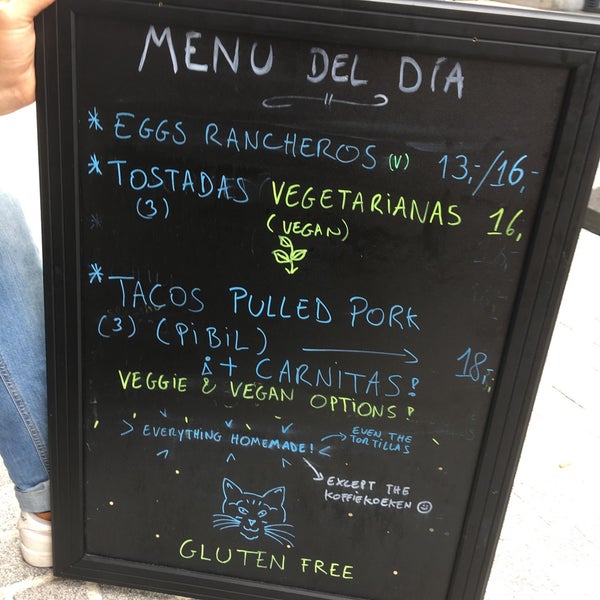 MENU DEL DÍA
* EGGS RANCHEROS (V) 13,-/16,-
* TOSTADAS VEGETARIANAS 16,
(3) (VEGAN)
* TACOS PULLED PORK
(3) (PIBIL) → 18,-
+ CARNITAS!
VEGGIE & VEGAN OPTIONS!
> EVERYTHING HOMEMADE! < → EVEN THE
TORTILLAS
→ EXCEPT THE
KOFFIEKOEKEN ☺
GLUTEN FREE